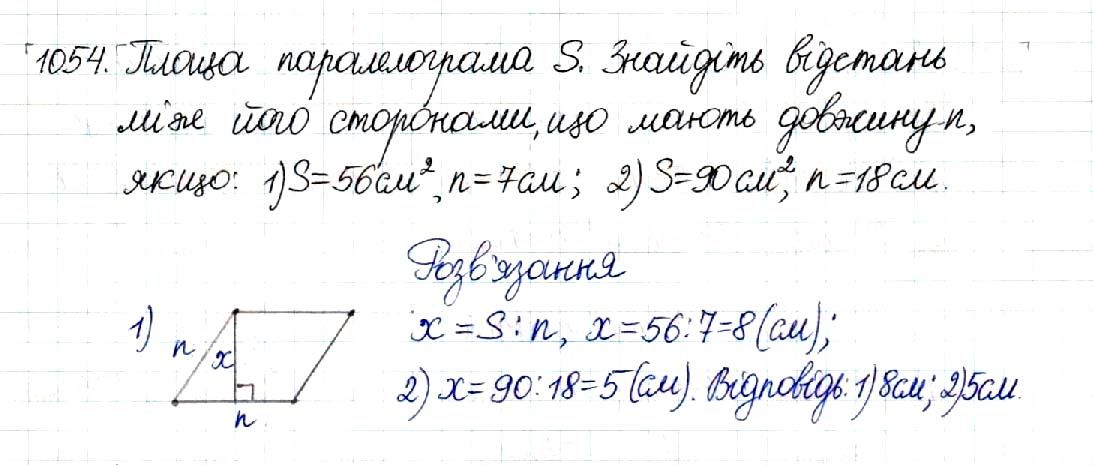 1054. Площа паралелограма S. Знайдіть відстань
між його сторонами, що мають довжину n,
якщо: 1) S=56см², n=7см; 2) S=90см², n=18см.
Розв'язання
1) n x n
x=S:n, x=56:7=8(см);
2) x=90:18=5(см). Відповідь: 1) 8см; 2) 5см.